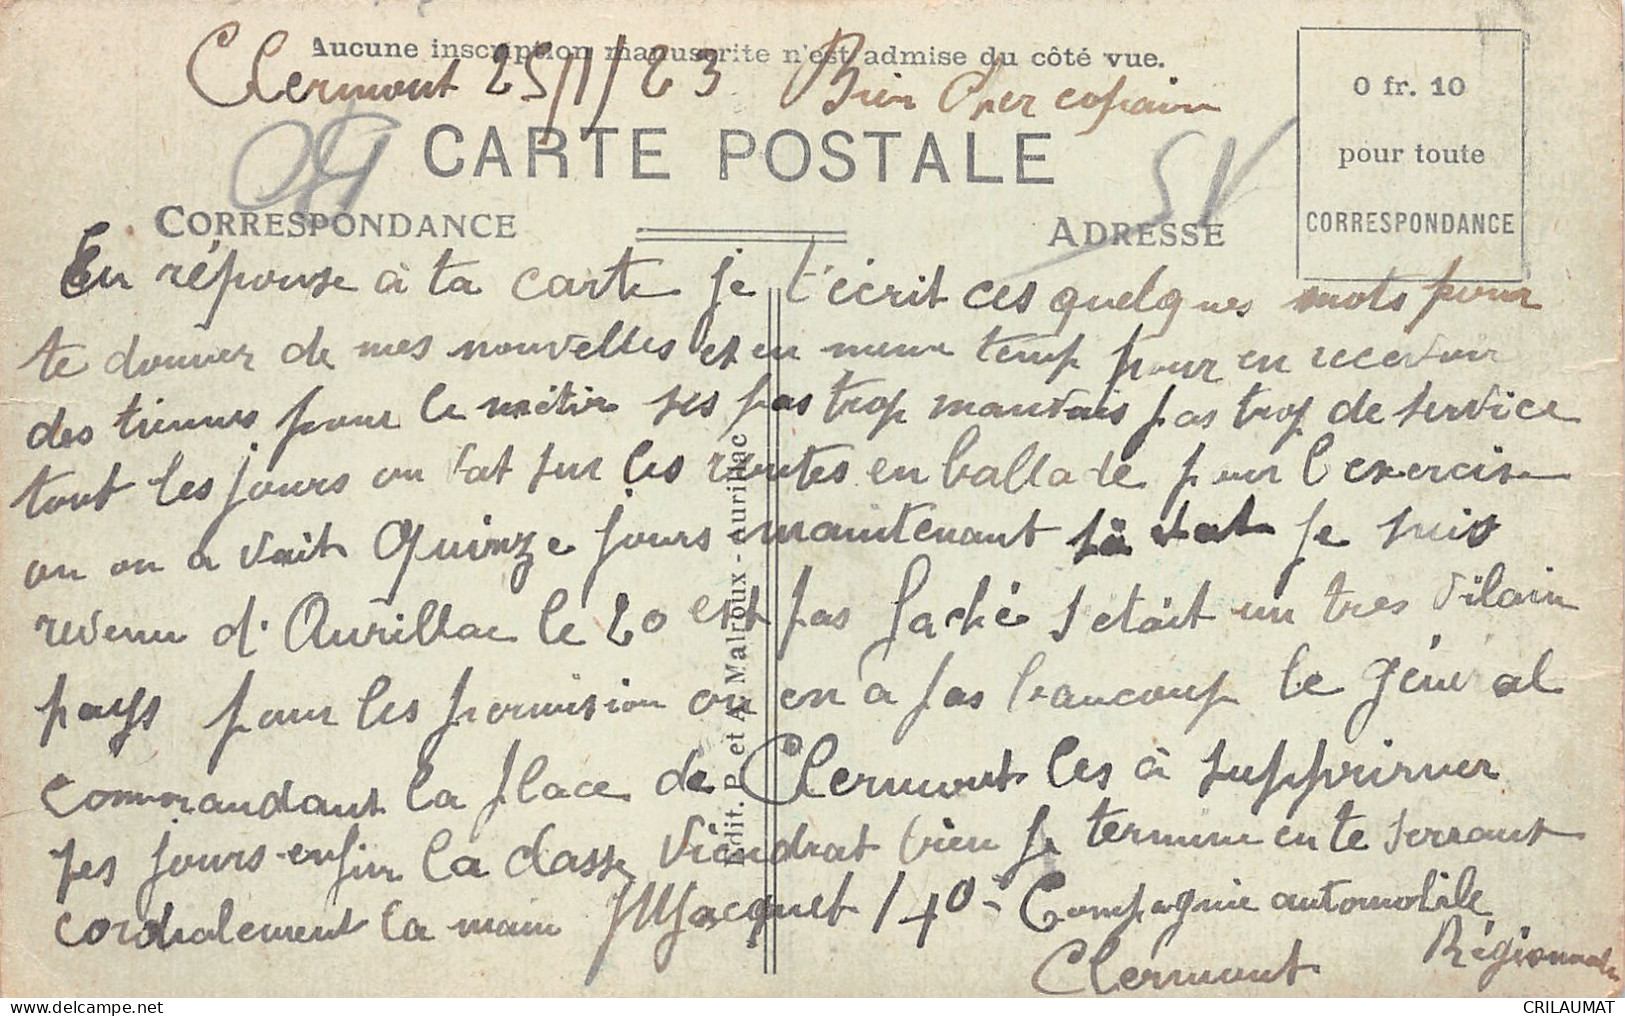 Aucune inscription manuscrite n'est admise du côté vue.
Clermont 25/1/23 Bien Cher copain
0 fr. 10
pour toute
CORRESPONDANCE
CARTE POSTALE
CORRESPONDANCE
ADRESSE
En réponse à ta carte je t'écrit ces quelques mots pour
te donner de mes nouvelles et en meme temp pour en recevoir
des tiennes pour le métier ses pas trop mauvais pas trop de service
tout les jours on vat sur les routes en ballade pour l'exercise
on on a vait Quinze jours maintenant sa vat je suis
revenu d'Aurillac le 20 est pas faché s'etait un tres vilain
pays pour les permission on en a pas beaucoup le général
commandant la place de Clermont les à supprimer
ses jours enfin la classe viendrat bien je termine en te serrant
cordialement la main Jacquet 140 - Compagnie automobile
Régionnale
Clermont
Edit. P. et A. Malroux - Aurillac
CRILAUMAT